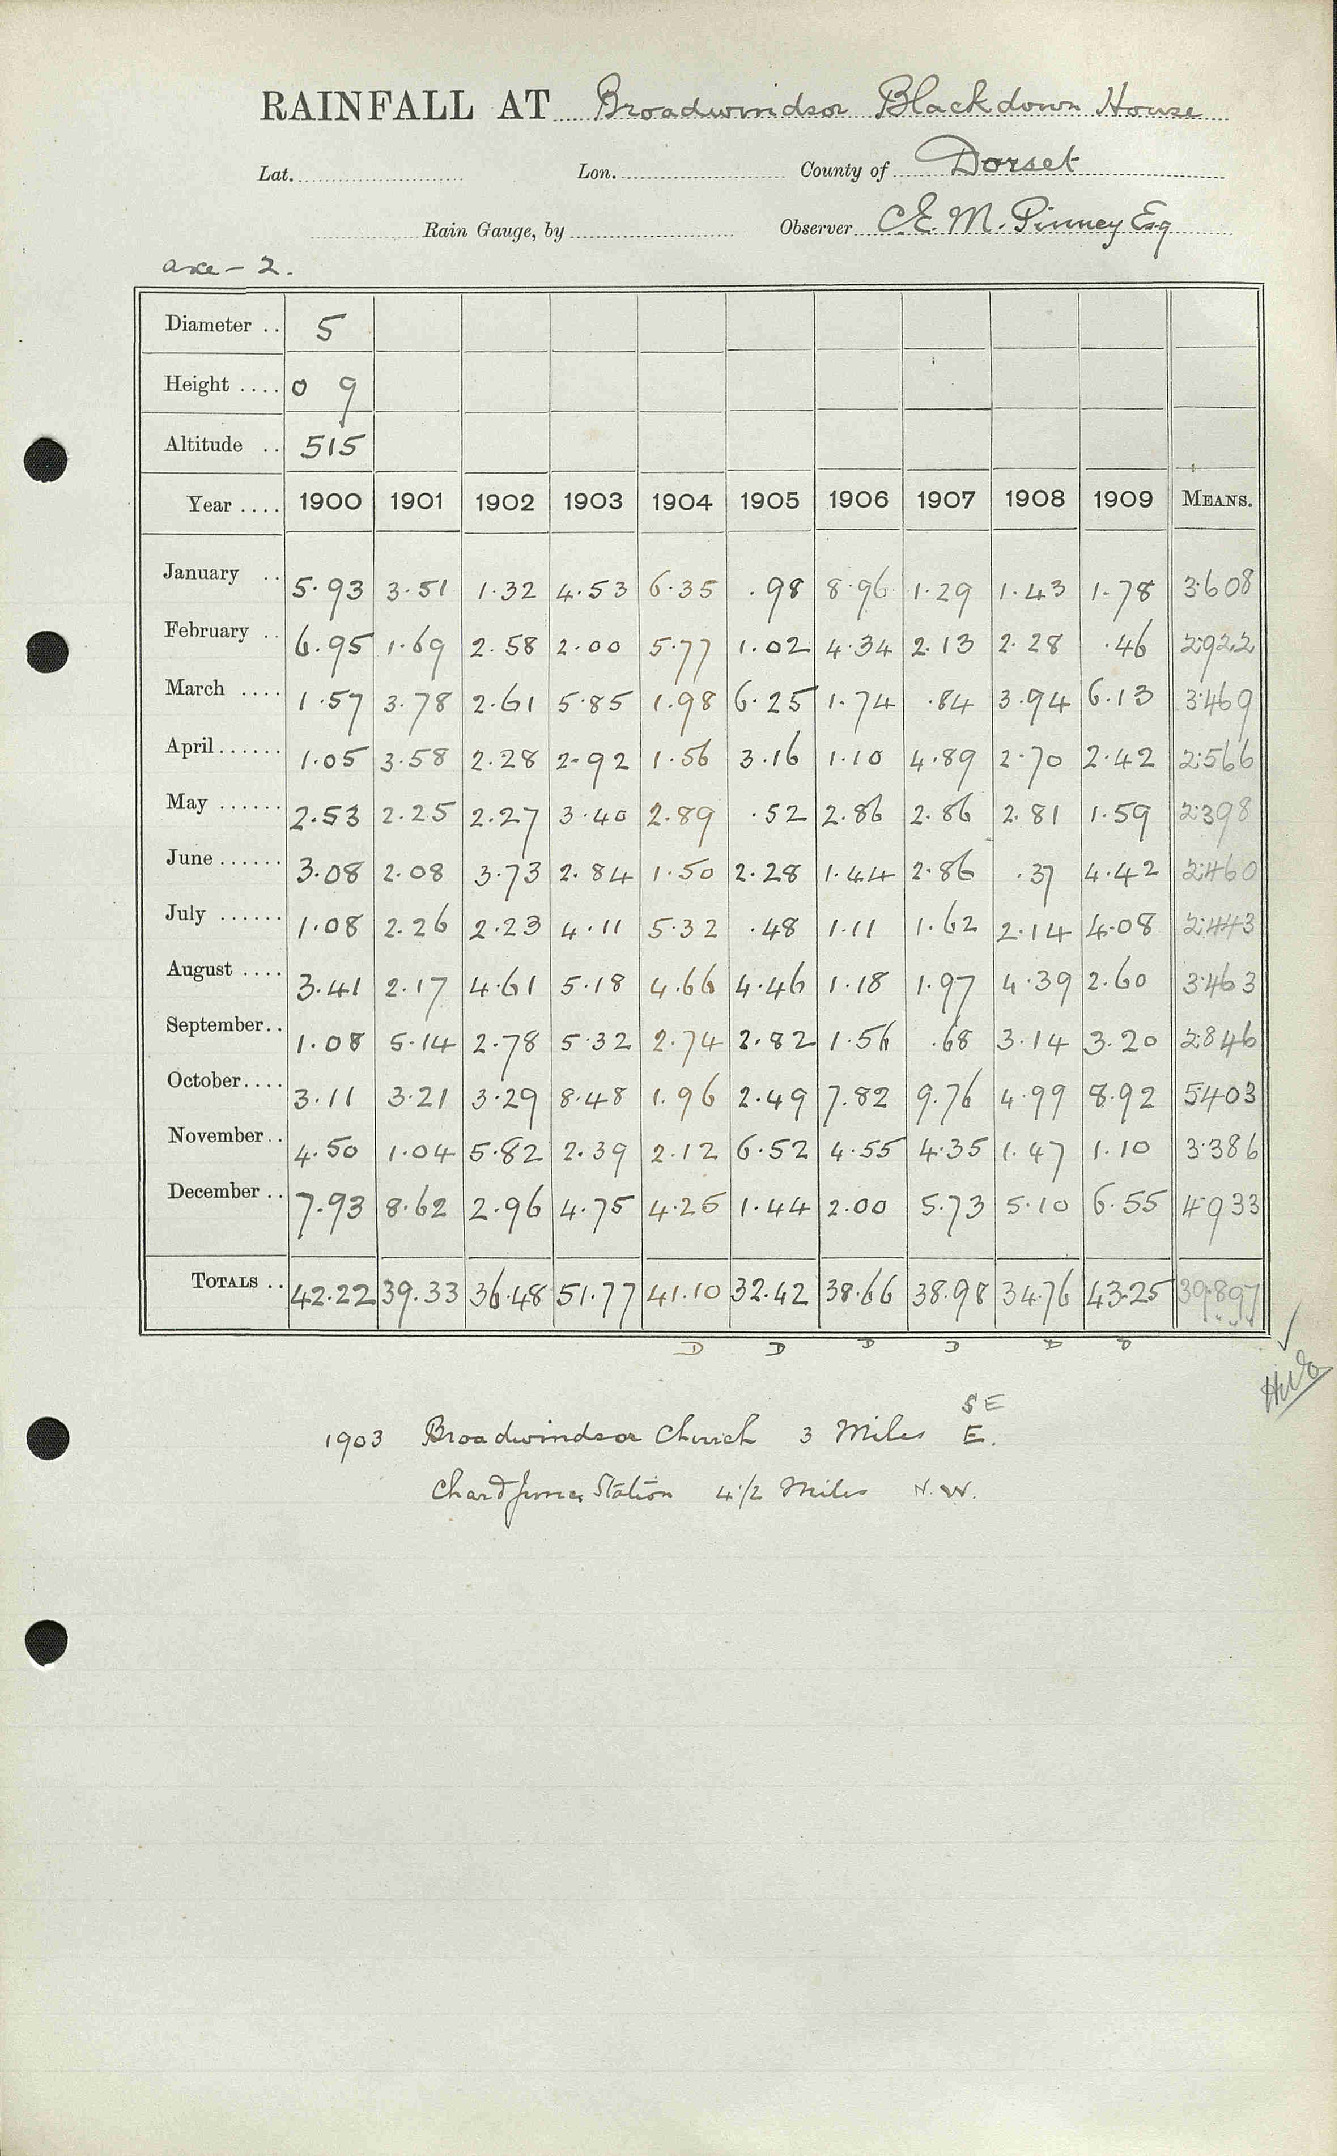 RAINFALL AT Broadwindsor Blackdown House
Lat. Lon. County of Dorset
Rain Gauge, by Observer C.E. M. Pinney Esq
axe - 2.
Diameter .. 5
Height .... 0 9
Altitude .. 515
Year .... 1900 1901 1902 1903 1904 1905 1906 1907 1908 1909 MEANS.
January .. 5.93 3.51 1.32 4.53 6.35 .98 8.96 1.29 1.43 1.78 3.608
February .. 6.95 1.69 2.58 2.00 5.77 1.02 4.34 2.13 2.28 .46 2.922
March .... 1.57 3.78 2.61 5.85 1.98 6.25 1.74 .84 3.94 6.13 3.469
April ...... 1.05 3.58 2.28 2.92 1.56 3.16 1.10 4.89 2.70 2.42 2.566
May ...... 2.53 2.25 2.27 3.40 2.89 .52 2.86 2.86 2.81 1.59 2.398
June ...... 3.08 2.08 3.73 2.84 1.50 2.28 1.44 2.86 .37 4.42 2.460
July ...... 1.08 2.26 2.23 4.11 5.32 .48 1.11 1.62 2.14 4.08 2.443
August .... 3.41 2.17 4.61 5.18 4.66 4.46 1.18 1.97 4.39 2.60 3.463
September.. 1.08 5.14 2.78 5.32 2.74 2.82 1.56 .68 3.14 3.20 2.846
October.... 3.11 3.21 3.29 8.48 1.96 2.49 7.82 9.76 4.99 8.92 5.403
November .. 4.50 1.04 5.82 2.39 2.12 6.52 4.55 4.35 1.47 1.10 3.386
December .. 7.93 8.62 2.96 4.75 4.25 1.44 2.00 5.73 5.10 6.55 4.933
TOTALS .. 42.22 39.33 36.48 51.77 41.10 32.42 38.66 38.98 34.76 43.25 39.897
D D D D D D
S E
1903 Broadwindsor Church 3 Miles E.
Chard Junc. Station 4 1/2 Miles N.W.